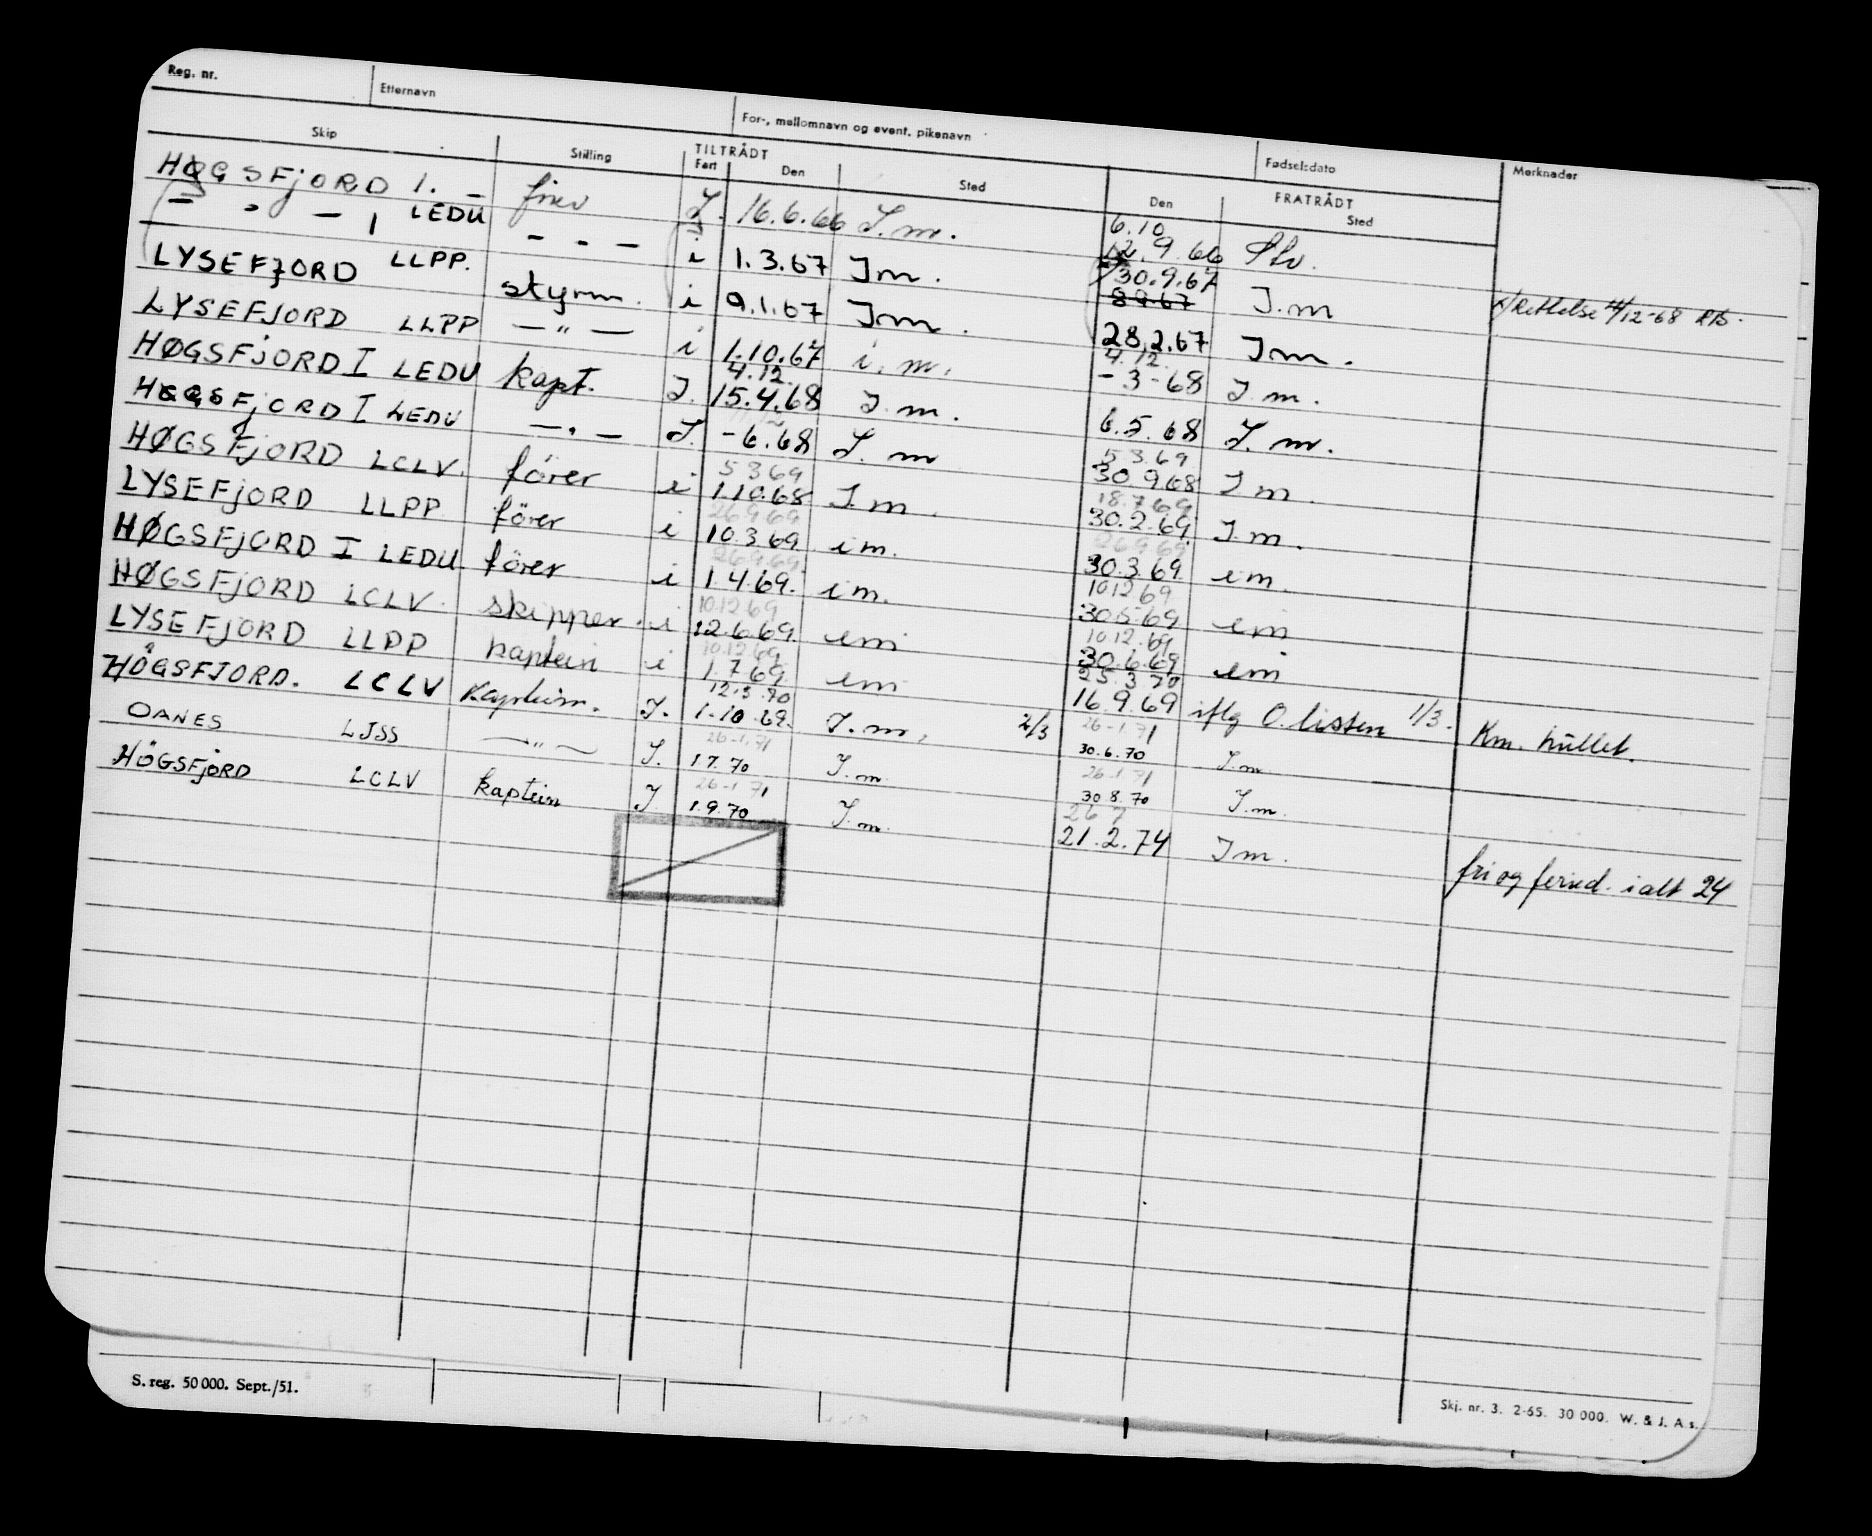 Reg. nr. Etternavn For-, mellomnavn og event. pikenavn Fødselsdato Merknader
Skip Stilling TILTRÅDT FRATRÅDT
Fart Den Sted Den Sted
HØGSFJORD I. — fører I. 16.6.66 I.m. 6.10
— " — I LEDU — " — i 1.3.67 Im. 2.9.66
LYSEFJORD LLPP. styrm. i 9.1.67 Im. 30.9.67 8.9.67 I.m Rettelse 4/12-68 RB.
LYSEFJORD LLPP — " — i 1.10.67 i.m. 28.2.67 Im.
HØGSFJORD I LEDU kapt. I. 4.12. 15.4.68 I.m. 4.12. -3-68 I.m.
HØGSFJORD I LEDU — " — I. -6.68 I.m 6.5.68 I.m.
HØGSFJORD LCLV. förer i 5 3 69 1.10.68 I.m. 5 3.69 30 9.68 Im.
LYSEFJORD LLPP förer i 26 9 69 10.3.69 im. 18.7 69 30.2.69 I.m.
HØGSFJORD I LEDU. förer i 26 9 69 1.4.69. im. 26 9 69 30.3.69. im.
HØGSFJORD LCLV. skipper. i 10.12 69 12.6.69. im 10 12 69 30.5.69 im
LYSEFJORD LLPP kaptein i 10.12.69 1.7 69. im 10.12.69 30.6.69 im
HÖGSFJORD. LCLV Kaptein. I. 12.3.70 1.10.69. I.m. 2/3 25.3 70 16.9.69 iflg O.listen 1/3. Km. hullet.
OANES LJSS — " — I. 26-1.71 1.7.70 I.m. 26-1.71 30.6.70 I.m.
HÖGSFJORD LCLV kaptein I 26-1 71 1.9.70 I.m. 26-1 71 30 8.70 I.m.
26 7
21.2.74 Im. fri og feried. i alt 24
S. reg. 50 000. Sept./51.
Skj. nr. 3. 2-65. 30 000. W. & J. A s.